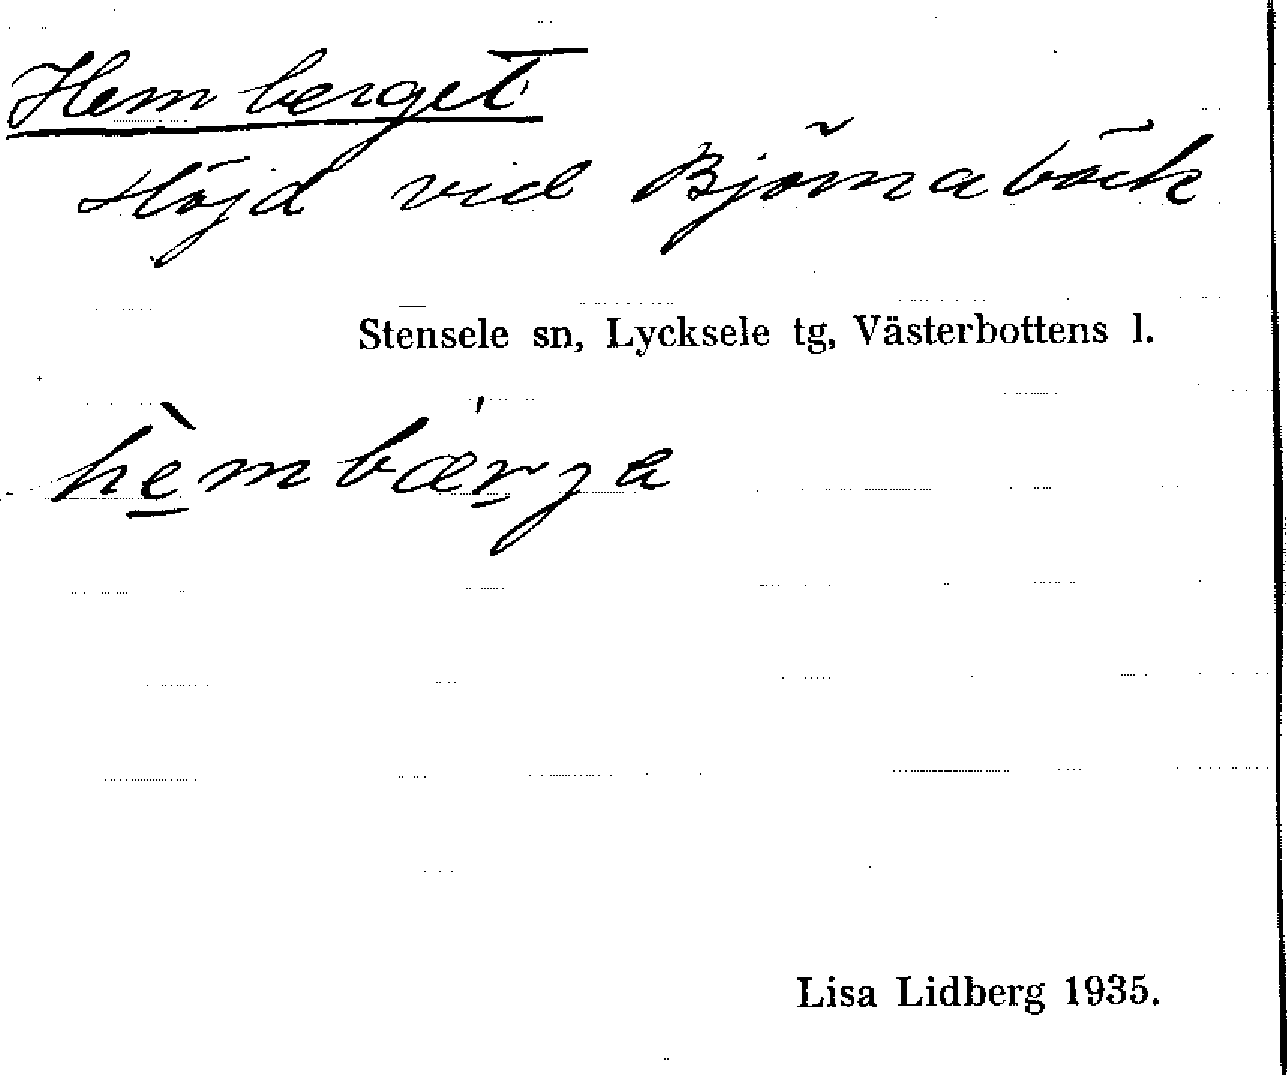 Hemberget
Höjd vid Björnabäck
Stensele sn, Lycksele tg, Västerbottens l.
hèmbærja
Lisa Lidberg 1935.